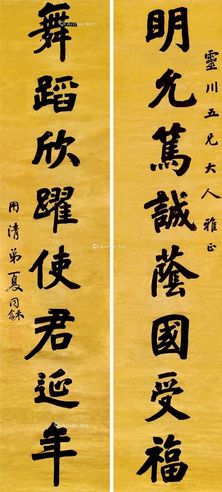 靈川五兄大人雅正
明允篤誠蔭國受福
舞蹈欣躍使君延年
用清弟夏同龢